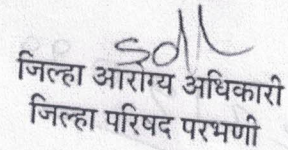 sdl
जिल्हा आरोग्य अधिकारी
जिल्हा परिषद परभणी